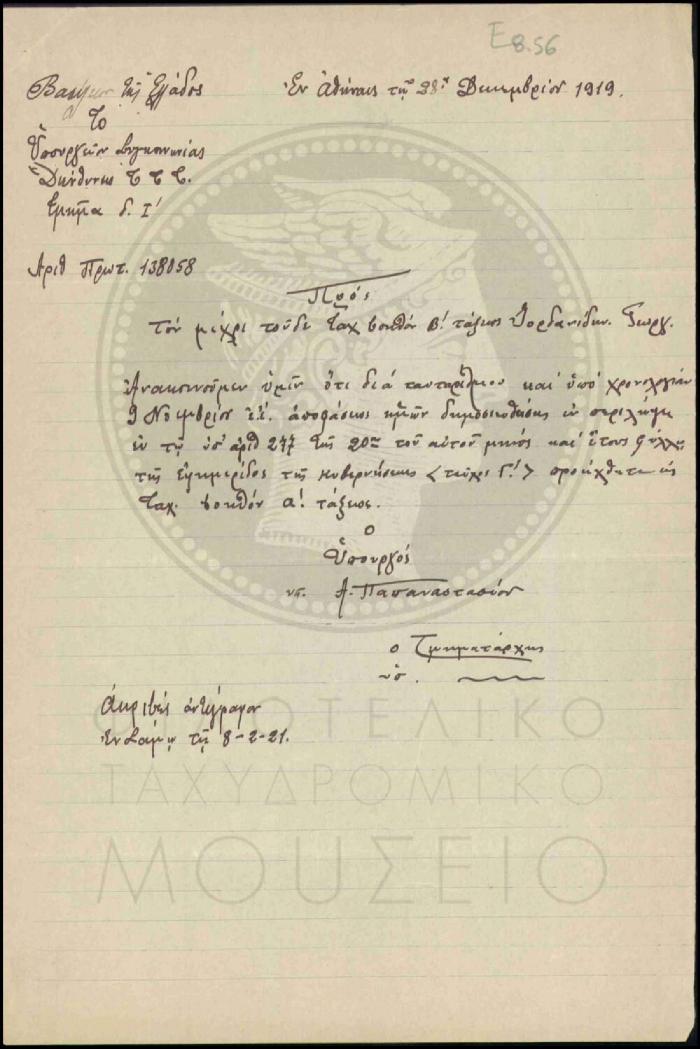 Ε8.56
Βασίλειον τῆς Ἑλλάδος
Ἐν Ἀθήναις τῇ 28ῃ Δεκεμβρίου 1919.
Τὸ
Ὑπουργεῖον Συγκοινωνίας
Διεύθυνσις Τ Τ Τ.
Τμῆμα δ. Ι'
Ἀριθ Πρωτ. 138058
Πρός
Τὸν μέχρι τοῦδε Ταχ βοηθὸν Β! τάξεως Ἰορδανίδην. Γεωργ.
Ἀνακοινοῦμεν ὑμῖν ὅτι διὰ ταυταρίθμου καὶ ὑπὸ χρονολογίαν
9 Νοεμβρίου ἀποφάσεως ἡμῶν δημοσιευθείσης ἐν περιλήψει
ἐν τῷ ὑπ' ἀριθ 247 τῆς 20ης τοῦ αὐτοῦ μηνὸς καὶ ἔτους φύλλῳ
τῆς ἐφημερίδος τῆς κυβερνήσεως <τεῦχος Γ!> προήχθητε εἰς
Ταχ. βοηθὸν Α! τάξεως.
Ο
Ὑπουργός
Α. Παπαναστασίου
ὁ Τμηματάρχης
ὑπ.
Ἀκριβὲς ἀντίγραφον
Ἐν Σάμῳ τῇ 8-2-21.
ΦΙΛΟΤΕΛΙΚΟ
ΤΑΧΥΔΡΟΜΙΚΟ
ΜΟΥΣΕΙΟ